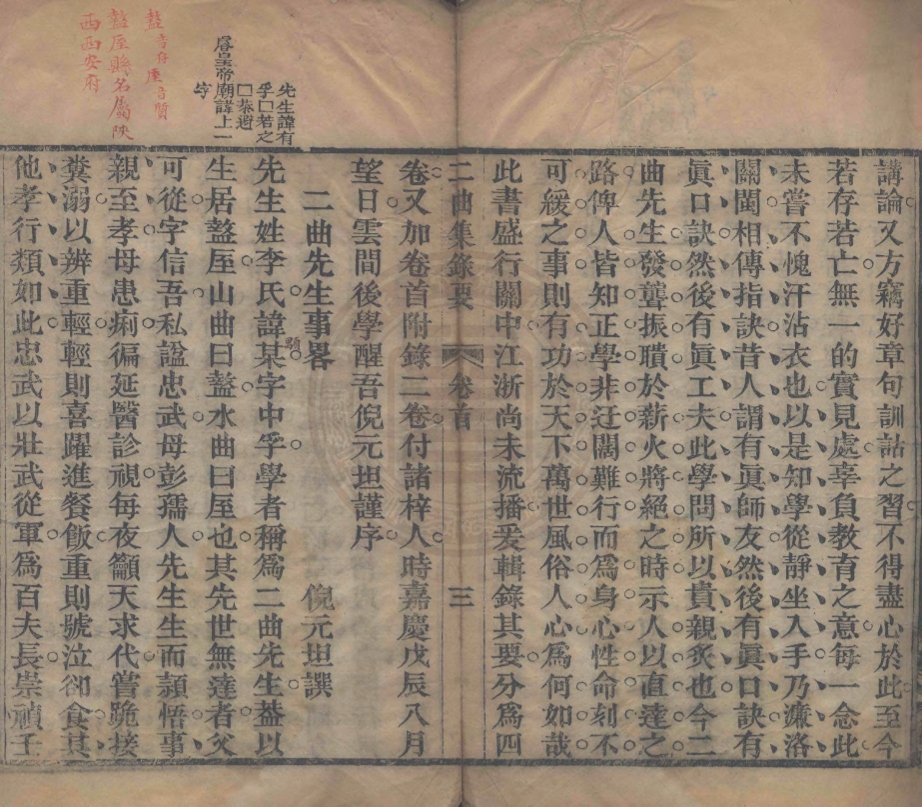 講論又方竊好章句訓詁之習不得盡心於此至今
若存若亡無一的實見處辜負教育之意每一念此
未嘗不愧汗沾衣也以是知學從靜坐入手乃濂洛
關閩相傳指訣昔人謂有眞師友然後有眞口訣有
眞口訣然後有眞工夫此學問所以貴親炙也今二
曲先生發聾振聵於薪火將絕之時示人以直達之
路俾人皆知正學非迂闊難行而爲身心性命刻不
可緩之事則有功於天下萬世風俗人心爲何如哉
此書盛行關中江浙尚未流播爰輯錄其要分爲四
二曲集錄要 卷首 三
卷又加卷首附錄二卷付諸梓人時嘉慶戊辰八月
望日雲間後學醒吾倪元坦謹序
二曲先生事畧 倪元坦譔
先生諱有
孚□若之
□恭避
睿皇帝廟諱上一
字
先生姓李氏諱某字中孚學者稱爲二曲先生葢以
顒
生居盩厔山曲曰盩水曲曰厔也其先世無達者父
可從字信吾私諡忠武母彭孺人先生生而穎悟事
親至孝母患痢徧延醫診視每夜籲天求代嘗跪接
糞溺以辨重輕輕則喜躍進餐飯重則號泣卻食其
他孝行類如此忠武以壯武從軍爲百夫長崇禎壬
盩音舟厔音質
盩厔縣名屬陝
西西安府